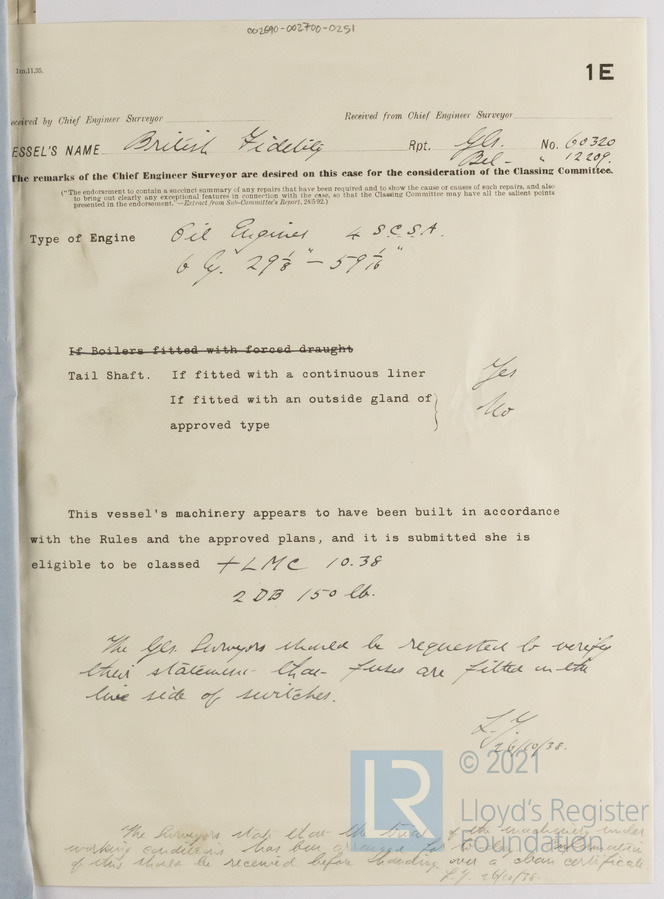 002690-002700-0251
1m.11,35.
1E
eceived by Chief Engineer Surveyor
Received from Chief Engineer Surveyor
ESSEL'S NAME British Fidelity Rpt. Gls. No. 60320
Bel - " 12209.
The remarks of the Chief Engineer Surveyor are desired on this case for the consideration of the Classing Committee.
("The endorsement to contain a succinct summary of any repairs that have been required and to show the cause or causes of such repairs, and also
to bring out clearly any exceptional features in connection with the case, so that the Classing Committee may have all the salient points
presented in the endorsement."—Extract from Sub-Committee's Report, 24/5/92.)
Type of Engine Oil Engines 4 S.C.S.A.
6 Cy. 29 1/8" - 59 1/16"
If Boilers fitted with forced draught
Tail Shaft. If fitted with a continuous liner Yes
If fitted with an outside gland of
approved type } No
This vessel's machinery appears to have been built in accordance
with the Rules and the approved plans, and it is submitted she is
eligible to be classed +LMC 10.38
2DB 150 lb.
The Gls. Surveyors should be requested to verify
their statement that fuses are fitted in the
live side of switches.
L.Y.
26/10/38.
© 2021
LR
Lloyd's Register
Foundation
The Surveyors state that the trial of the machinery under
working conditions has been arranged for
of this should be received before handing over a clean certificate
L.Y. 26/10/38